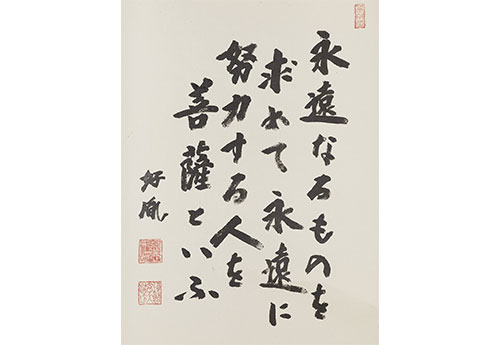 永遠なるものを
求めて永遠に
努力する人を
菩薩といふ
好胤